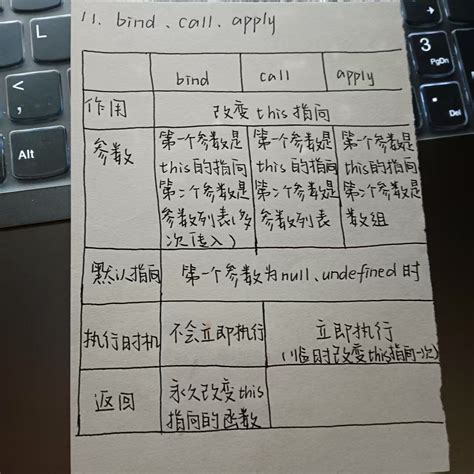 11. bind、call、apply
bind call apply
作用 改变this指向
参数
第一个参数是 第一个参数是 第一个参数是
this的指向 this的指向 this的指向
第二个参数是 第二个参数是 第二个参数是
参数列表(多 参数列表 数组
次传入)
默认指向 第一个参数为null、undefined时
执行时机 不会立即执行 立即执行
(临时改变this指向一次)
返回 永久改变this
指向的函数
<
,
Alt
3
PgDn
Del